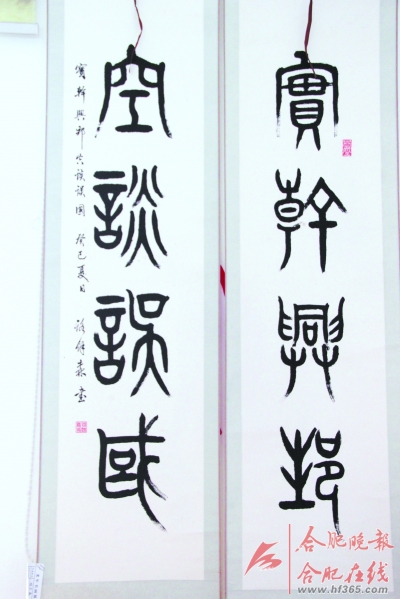 實幹興邦
空談誤國
實幹興邦空談誤國 癸巳夏日
合肥晚報
合肥在线
www.hf365.com